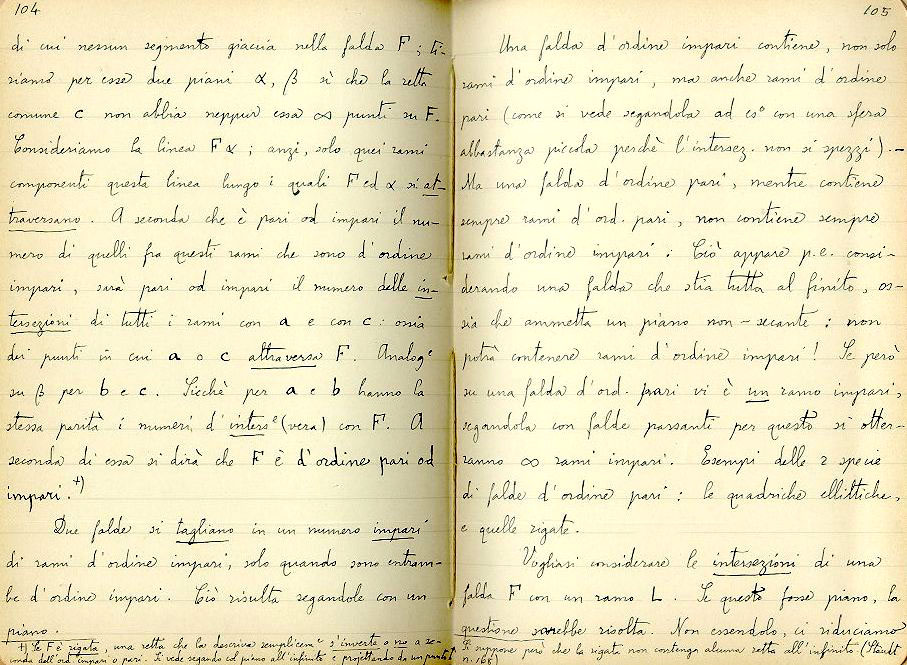 104
di cui nessun segmento giaccia nella falda F; ti-
riamo per esse due piani α, β sì che la retta
comune c non abbia neppur essa ∞ punti su F.
Consideriamo la linea Fα; anzi, solo quei rami
componenti questa linea lungo i quali F ed α si at-
traversano. A seconda che è pari od impari il nu-
mero di quelli fra questi rami che sono d'ordine
impari, sarà pari od impari il numero delle in-
tersezioni di tutti i rami con a e con c: ossia
dei punti in cui a o c attraversa F. Analogᵉ
su β per b e c. Sicchè per a e b hanno la
stessa parità i numeri d'intersᵉ (vera) con F. A
seconda di essa si dirà che F è d'ordine pari od
impari.⁺)
Due falde si tagliano in un numero impari
di rami d'ordine impari, solo quando sono entram-
be d'ordine impari. Ciò risulta segandole con un
piano.
+) Se F è rigata, una retta che la descriva semplicemᵉ s'inverte o no a se-
conda dell'ord. impari o pari. Si vede segando col piano all'infinito e projettando da un punto.
105
Una falda d'ordine impari contiene, non solo
rami d'ordine impari, ma anche rami d'ordine
pari (come si vede segandola ad esº con una sfera
abbastanza piccola perchè l'intersez. non si spezzi).—
Ma una falda d'ordine pari, mentre contiene
sempre rami d'ord. pari, non contiene sempre
rami d'ordine impari: Ciò appare p.e. consi-
derando una falda che stia tutta al finito, os-
sia che ammetta un piano non-secante: non
potrà contenere rami d'ordine impari! Se però
su una falda d'ord. pari vi è un ramo impari,
segandola con falde passanti per questo si otter-
ranno ∞ rami impari. Esempi delle 2 specie
di falde d'ordine pari: le quadriche ellittiche,
e quelle rigate.
Vogliasi considerare le intersezioni di una
falda F con un ramo L. Se questo fosse piano, la
questione sarebbe risolta. Non essendolo, ci riduciamo
Si suppone però che la rigata non contenga alcuna retta all'infinito (Staudt
n. 168